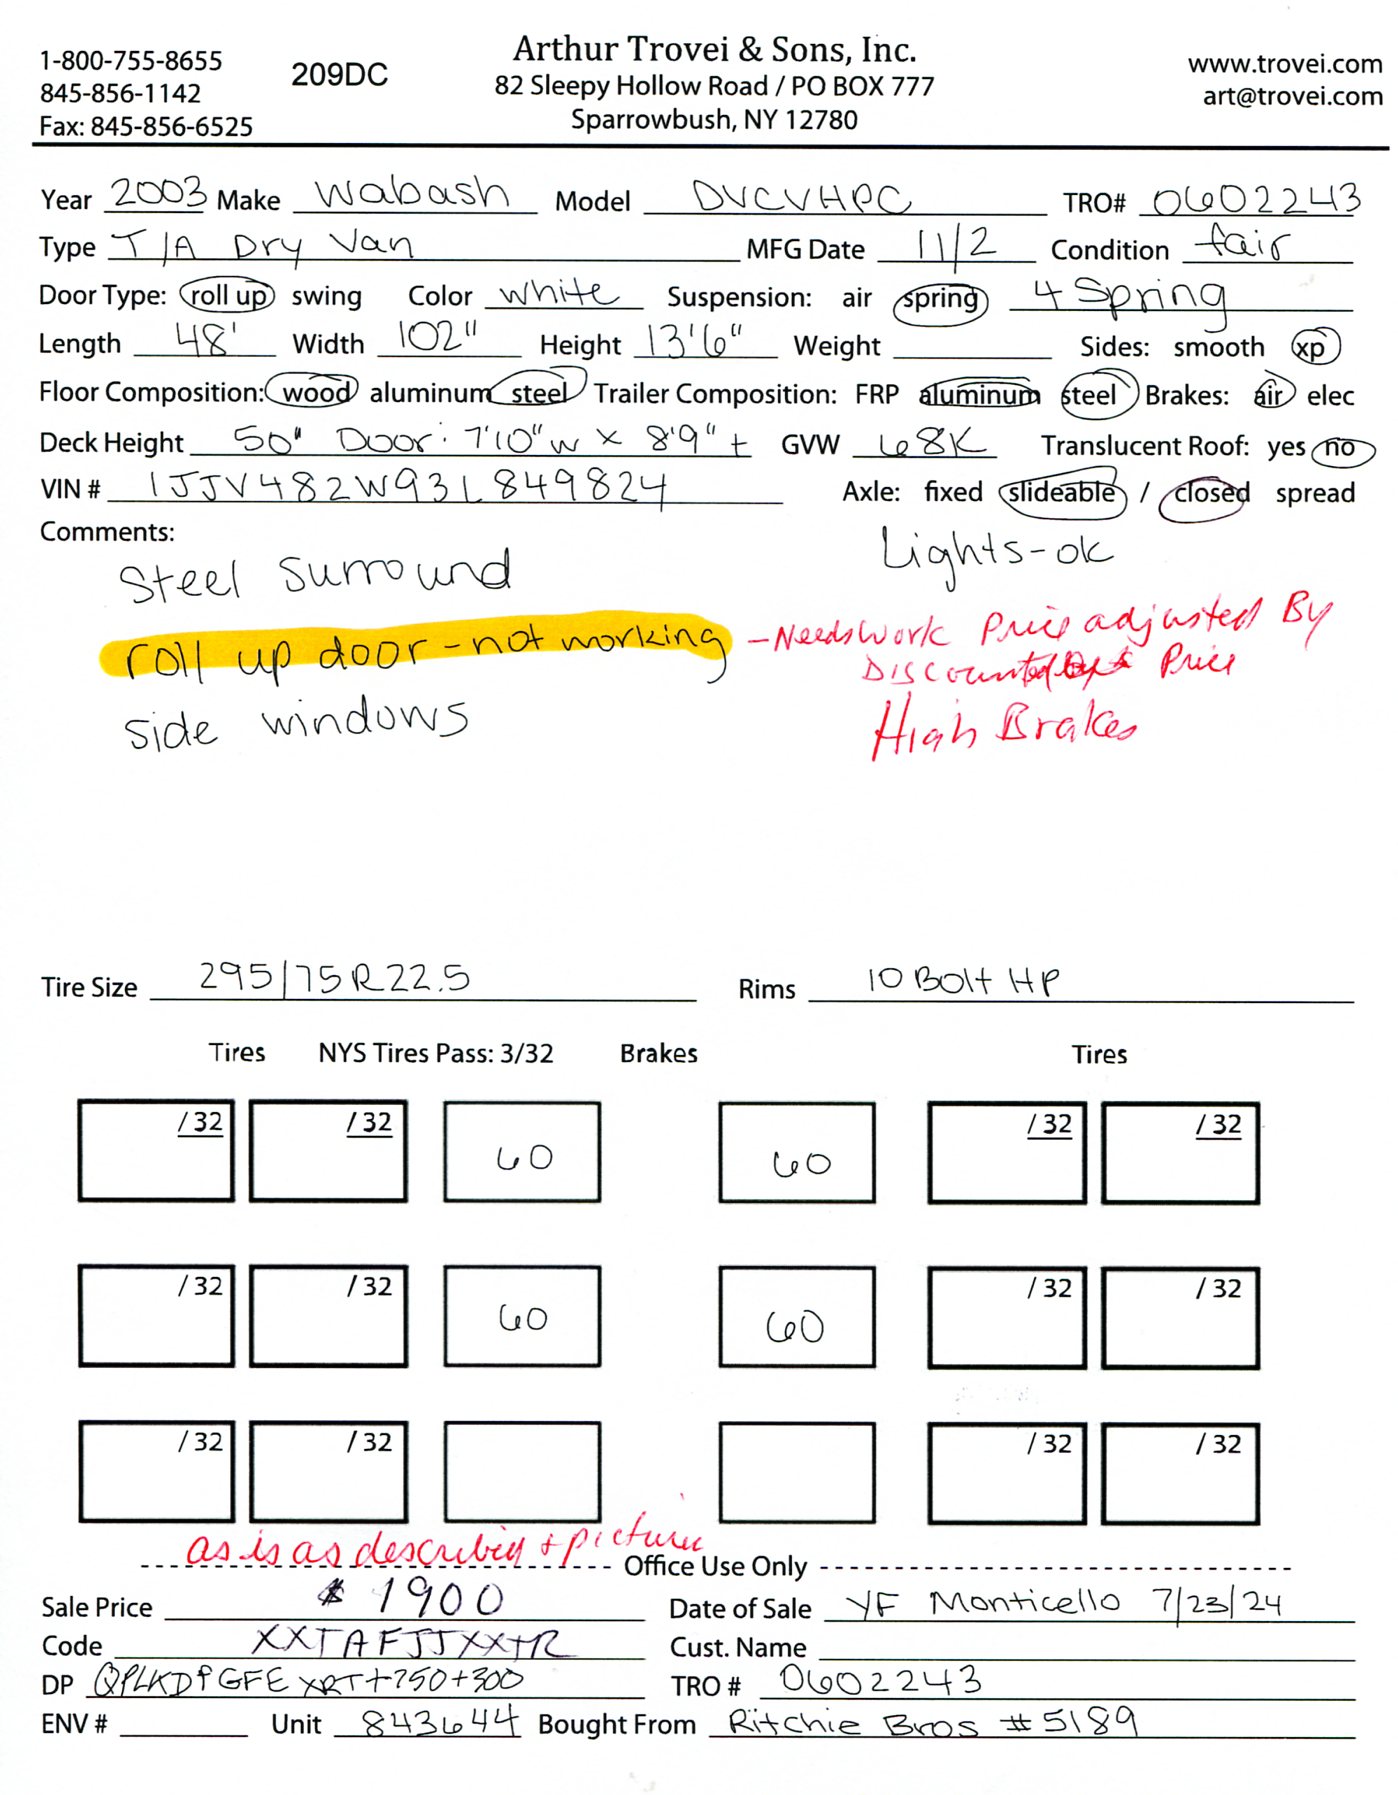 1-800-755-8655
845-856-1142
Fax: 845-856-6525
209DC
Arthur Trovei & Sons, Inc.
82 Sleepy Hollow Road / PO BOX 777
Sparrowbush, NY 12780
www.trovei.com
art@trovei.com
Year 2003 Make Wabash Model DVCVHPC TRO# 0602243
Type T/A Dry Van MFG Date 11/2 Condition fair
Door Type: roll up swing Color white Suspension: air spring 4 Spring
Length 48' Width 102" Height 13'6" Weight Sides: smooth xp
Floor Composition: wood aluminum steel Trailer Composition: FRP aluminum steel Brakes: air elec
Deck Height 50" Door: 7'10"w x 8'9"t GVW 68K Translucent Roof: yes no
VIN # 1JJV482W93L849824 Axle: fixed slideable / closed spread
Comments:
Lights-ok
Steel Surround
roll up door - not working - Needs Work Price adjusted By
Discounted Price
side windows
High Brakes
Tire Size 295/75R22.5 Rims 10 Bolt HP
Tires NYS Tires Pass: 3/32 Brakes Tires
/32 /32 60 60 /32 /32
/32 /32 60 60 /32 /32
/32 /32 /32 /32
as is as described + picture
Office Use Only
Sale Price $1900 Date of Sale YF Monticello 7/23/24
Code XXTAFJJXX+R Cust. Name
DP QPLKDPGFE XRT+750+300 TRO # 0602243
ENV # Unit 843644 Bought From Ritchie Bros #5189